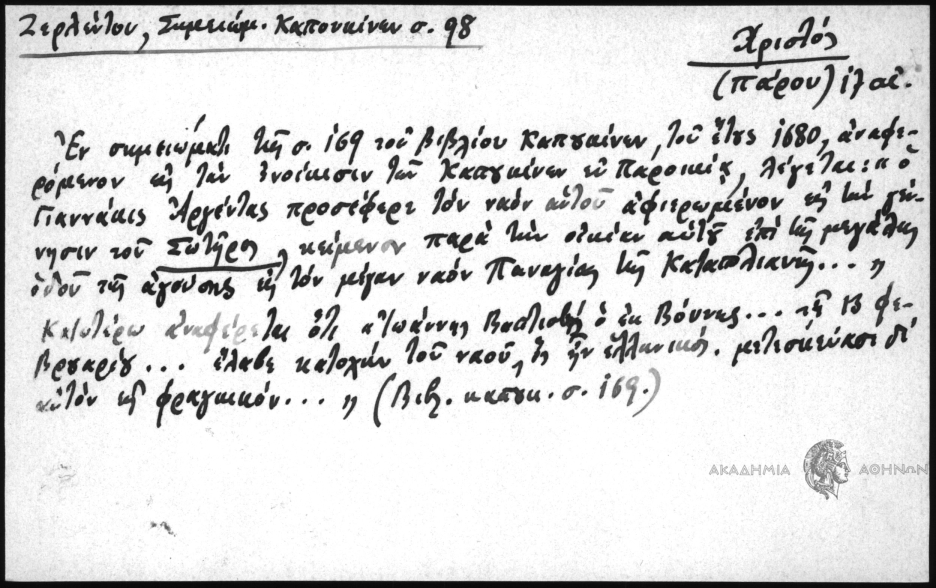 Ζερλέντου, Σημειώμ. Καπουκίνων σ. 98
Χριστός
(Πάρου) ιζ αἰ.
Ἐν σημειώματι τῆς σ. 169 τοῦ βιβλίου Καπουκίνων, τοῦ ἔτους 1680, ἀναφε-
ρόμενον εἰς τὴν ἐνοίκισιν τῶν Καπουκίνων ἐν Παροικίᾳ, λέγεται: "ὁ
Γιαννάκις Ἀργέντας προσέφερε τὸν ναὸν αὐτοῦ ἀφιερωμένον εἰς τὴν γέν-
νησιν τοῦ Σωτῆρος, κείμενον παρὰ τὴν οἰκίαν αὐτοῦ ἐπὶ τῆς μεγάλης
ὁδοῦ τῆς ἀγούσης εἰς τὸν μέγαν ναὸν Παναγίας τῆς Καταπολιανῆς... "
Κατωτέρω ἀναφέρεται ὅτι "Ἰωάννης ὁ ἐκ Βόνης... τῇ 13 Φε-
βρουαρίου... ἔλαβε κατοχὴν τοῦ ναοῦ, ὃς ἦν ἑλληνικός. μετεσκεύασε δὲ
αὐτὸν εἰς φραγκικόν... " (Βιβλ. καπουκ. σ. 169.)
ΑΚΑΔΗΜΙΑ ΑΘΗΝΩΝ